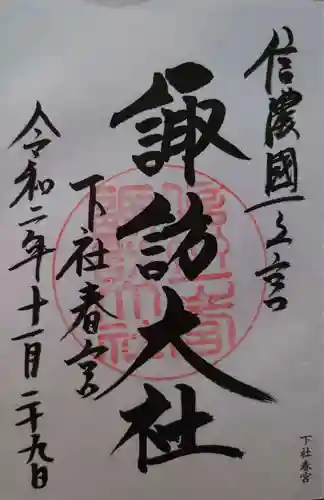 信濃國一之宮
諏訪大社
下社春宮
令和二年十一月二十九日
下社春宮